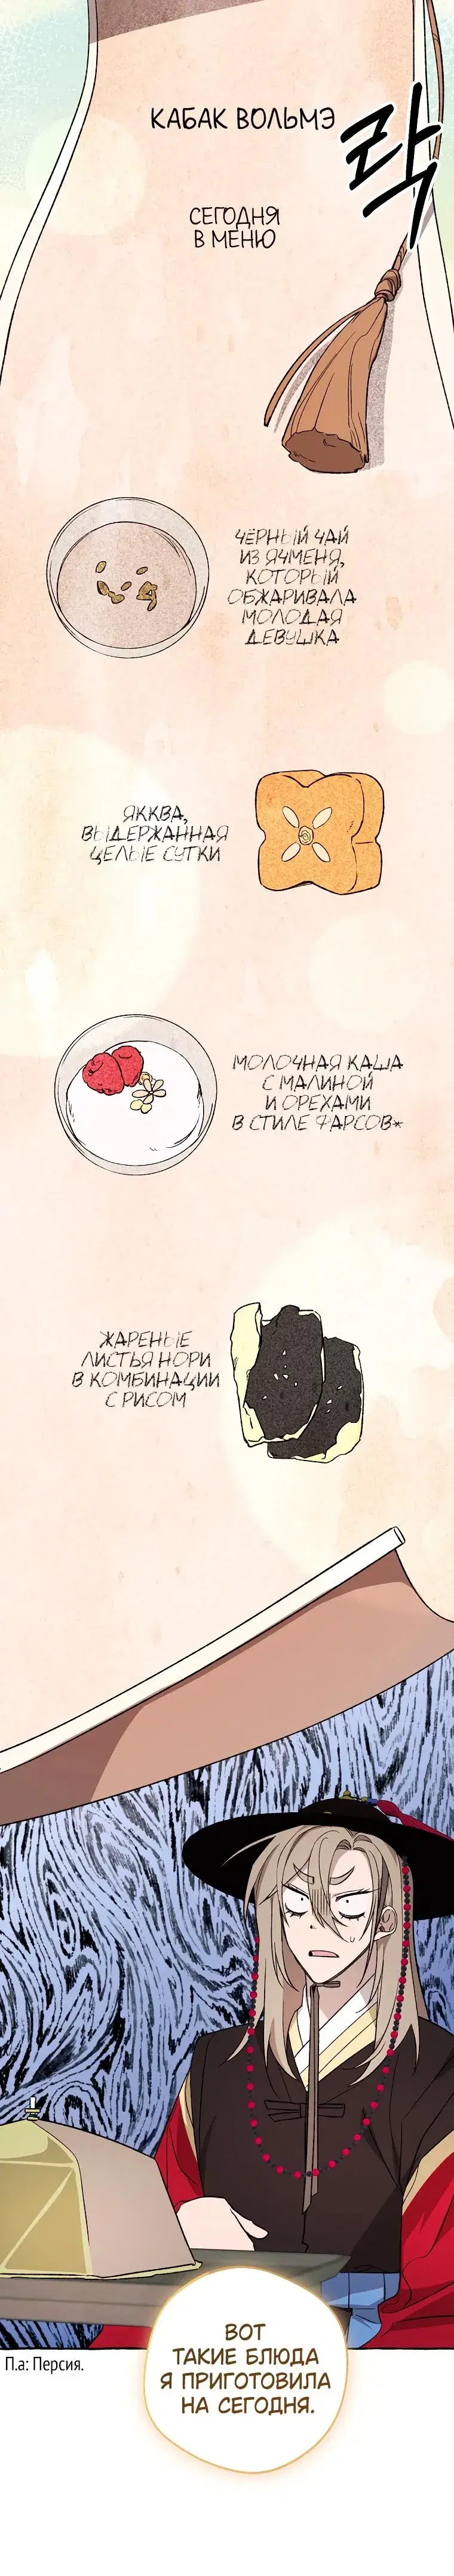 КАБАК ВОЛЬМЭ
락
СЕГОДНЯ
В МЕНЮ
ЧЁРНЫЙ ЧАЙ
ИЗ ЯЧМЕНЯ,
КОТОРЫЙ
ОБЖАРИВАЛА
МОЛОДАЯ
ДЕВУШКА
ЯККВА,
ВЫДЕРЖАННАЯ
ЦЕЛЫЕ СУТКИ
МОЛОЧНАЯ КАША
С МАЛИНОЙ
И ОРЕХАМИ
В СТИЛЕ ФАРСОВ*
ЖАРЕНЫЕ
ЛИСТЬЯ НОРИ
В КОМБИНАЦИИ
С РИСОМ
П.а: Персия.
ВОТ
ТАКИЕ БЛЮДА
Я ПРИГОТОВИЛА
НА СЕГОДНЯ.